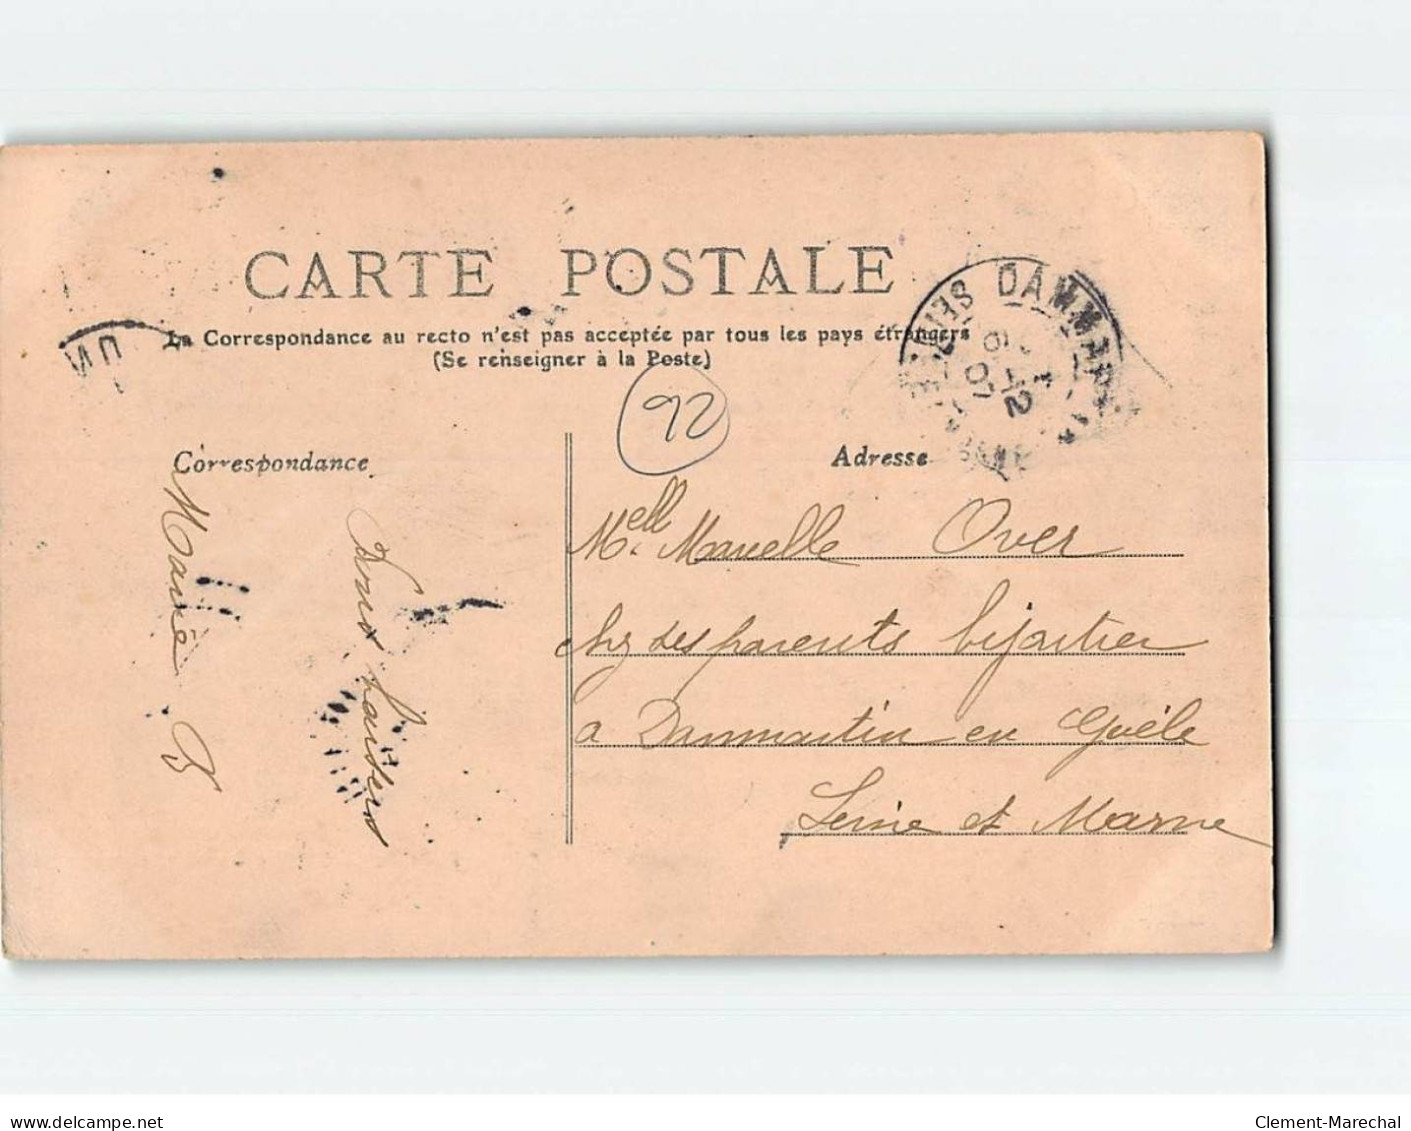 CARTE POSTALE
La Correspondance au recto n'est pas acceptée par tous les pays étrangers
(Se renseigner à la Poste)
DAMMARTIN
SEINE
12
07
92
Correspondance
Adresse
Mell. Marcelle Over
chez ses parents bijoutier
a Dammartin en Goële
Seine et Marne
baisers
Marie B
www.delcampe.net
Clement-Marechal